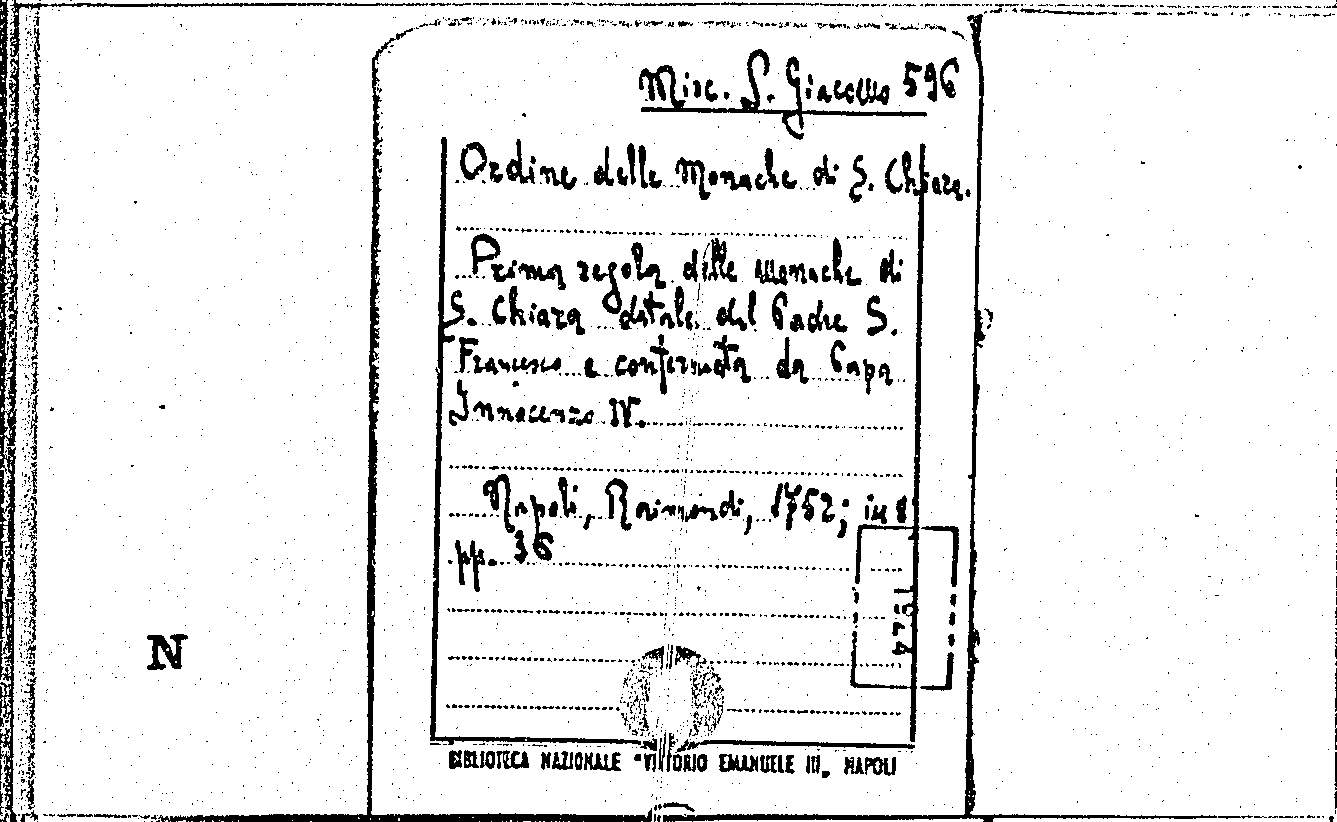 Misc. S. Giacomo 596
Ordine delle Monache di S. Chiara.
Prima regola delle monache di
S. Chiara datale dal Padre S.
Francesco e confermata da Papa
Innocenzo IV.
Napoli, Raimondi, 1752; in 8°
pp. 36
N
BIBLIOTECA NAZIONALE "VITTORIO EMANUELE III„ NAPOLI